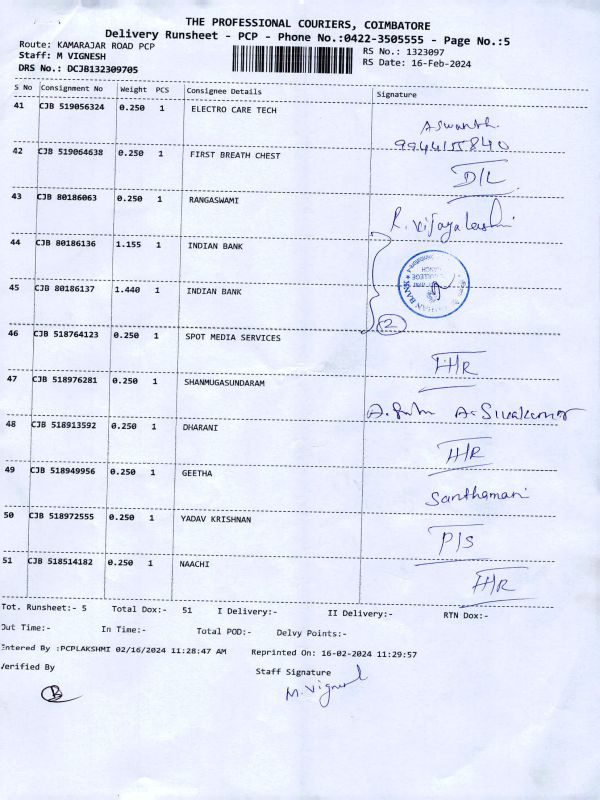 THE PROFESSIONAL COURIERS, COIMBATORE
Delivery Runsheet - PCP - Phone No.:0422-3505555 - Page No.:5
Route: KAMARAJAR ROAD PCP RS No.: 1323097
Staff: M VIGNESH RS Date: 16-Feb-2024
DRS No.: DCJB132309705
S No Consignment No Weight PCS Consignee Details Signature
41 CJB 519056324 0.250 1 ELECTRO CARE TECH
Aswanth
9944155840
42 CJB 519064638 0.250 1 FIRST BREATH CHEST
D/L
43 CJB 80186063 0.250 1 RANGASWAMI
R. Vijayalakshmi
44 CJB 80186136 1.155 1 INDIAN BANK
45 CJB 80186137 1.440 1 INDIAN BANK
2
46 CJB 518764123 0.250 1 SPOT MEDIA SERVICES
H/R
47 CJB 518976281 0.250 1 SHANMUGASUNDARAM
A. Sivakumar
48 CJB 518913592 0.250 1 DHARANI
H/R
49 CJB 518949956 0.250 1 GEETHA
Santhamani
50 CJB 518972555 0.250 1 YADAV KRISHNAN
P/S
51 CJB 518514182 0.250 1 NAACHI
H/R
Tot. Runsheet:- 5 Total Dox:- 51 I Delivery:- II Delivery:- RTN Dox:-
Out Time:- In Time:- Total POD:- Delvy Points:-
Entered By :PCPLAKSHMI 02/16/2024 11:28:47 AM Reprinted On: 16-02-2024 11:29:57
Verified By Staff Signature
M. Vignesh